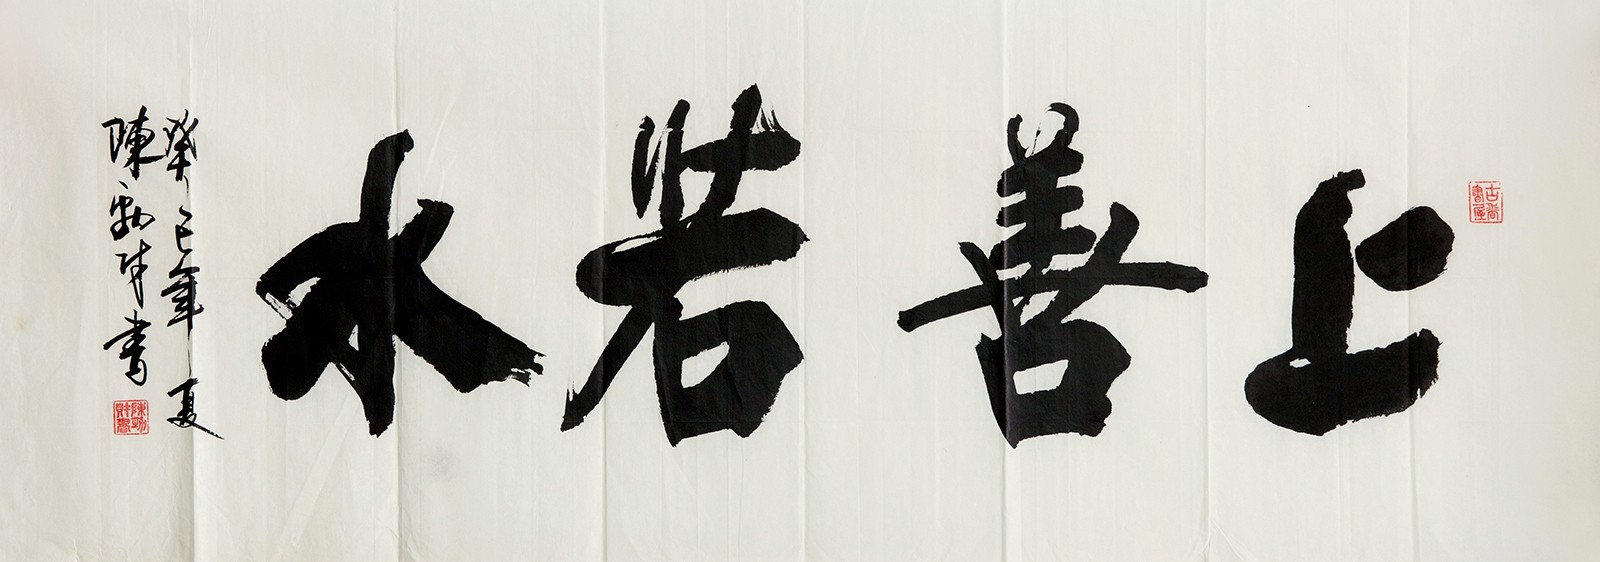 上善若水
癸巳年夏
陳勛財書